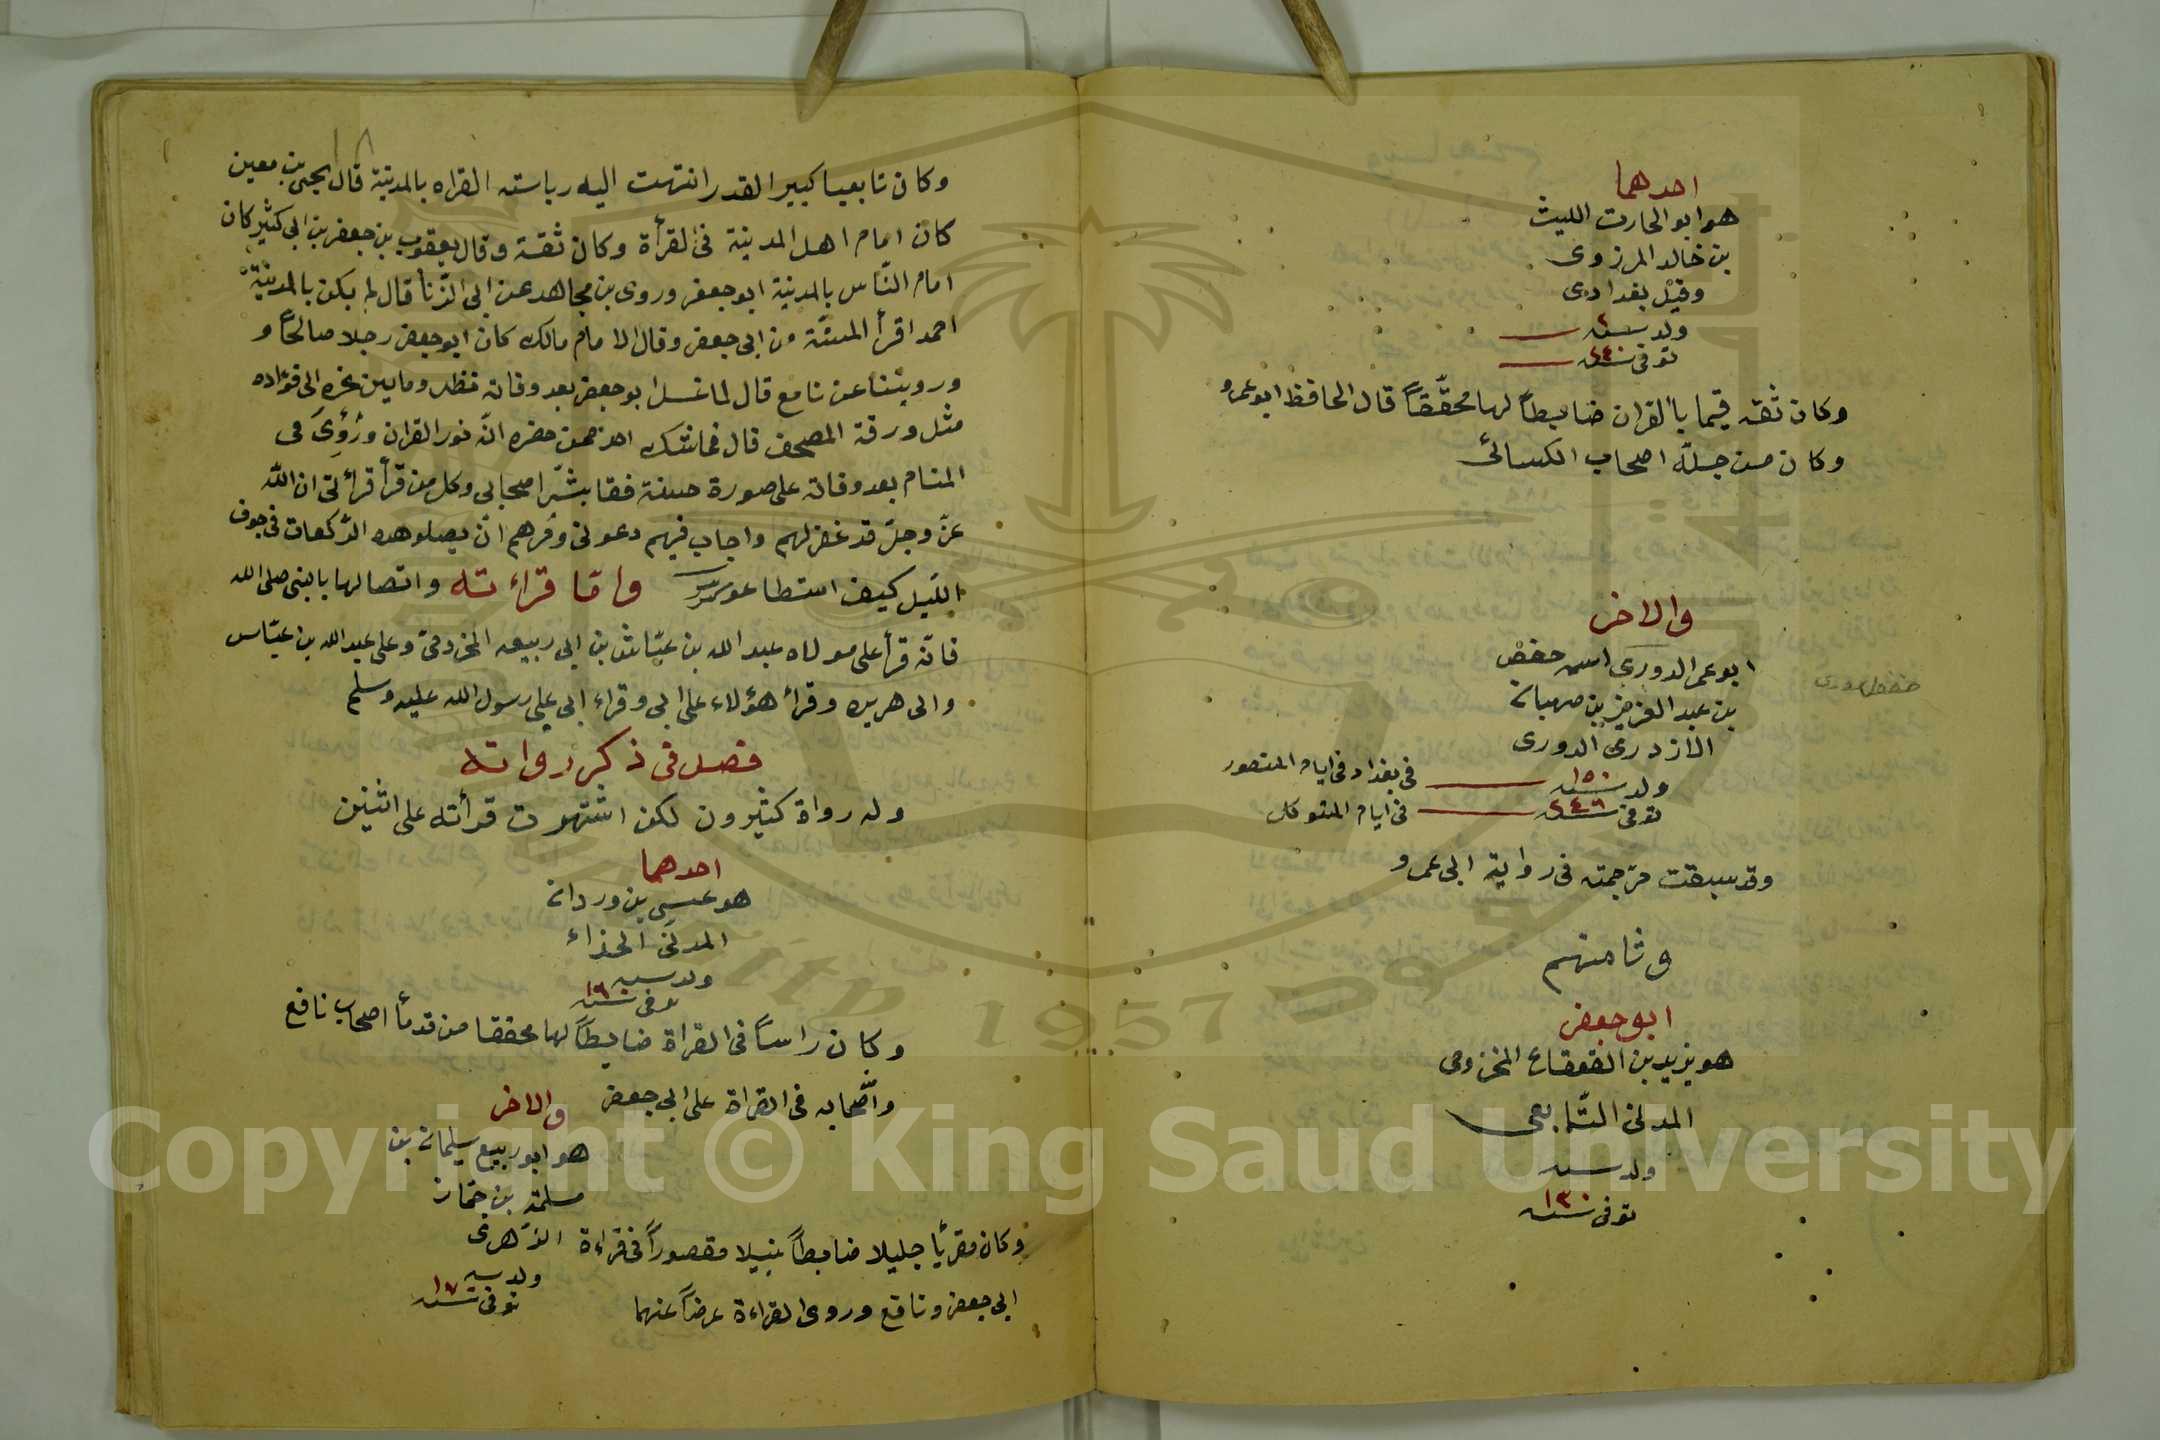 احدهما
هو ابو الحارت الليث
بن خالد المرزوى
وقيل بغدادى
ولد سنه
توفى سنه ٢٤٠
وكان ثقه قيما بالقران ضابطاً لها محقّقاً قال الحافظ ابو عمرو
وكان من جلّه اصحاب الكسائى
والاخر
ابو عمر الدورى اسمه حفص
بن عبد العزيز بن صهبان
الازدرى الدورى
ولد سنه ١٥٠ فى بغداد فى ايام المنصور
توفى سنه ٢٤٦ فى ايام المتوكل
حفص دورى
وقد سبقت ترجمته فى رواية ابى عمرو
وثامنهم
ابو جعفر
هو يزيد بن القعقاع المخزومى
المدنى التّابعى
ولد سنه
توفى سنه ١٣٠
١٨
وكان تابعيا كبير القدر انتهت اليه رياسته القراه بالمدينة قال يحيى بن معين
كان امام اهل المدينة فى القرأة وكان ثقة وقال يعقوب بن جعفر بن ابى كثير كان
امام النّاس بالمدينة ابو جعفر وروى بن مجاهد عن ابى الزّنا قال لم يكن بالمدينة
احمد اقرأ السنّة من ابى جعفر وقال الامام مالك كان ابو جعفر رجلا صالحاً و
وروينا عن نافع قال لما غسل ابو جعفر بعد وفاته نظر وما بين نحره الى فؤاده
مثل ورقة المصحف قال فما شك احد ممن حضره انّه نور القران ورُؤى فى
المنام بعد وفاته على صورة حسنة فقا بشّر اصحابى وكل من قرأ قرأتى ان الله
عزّ وجلّ قد غفر لهم واجاب فيهم دعوتى ومرهم ان يصلو هذه الرّكعات فى جوف
اللّيل كيف استطاعو وامّا قراءته واتصالها بالنبى صلى الله
فانّه قرأ على مولاه عبد الله بن عيّاش بن ابى ربيعه المخزومى وعلى عبد الله بن عبّاس
والى هريره وقرأ هؤلاء على ابى وقراء ابى على رسول الله عليه وسلم
فصل فى ذكر رواته
وله رواة كثيرون لكن اشتهرت قرأته على اثنين
احدهما
هو عيسى بن وردان
المدنى الحذاء
ولد سنه
توفى سنه ١٦٠
وكان راساً فى القراة ضابطاً لها محققا من قدمأ اصحاب نافع
واصّحابه فى القراة على ابى جعفر
والاخر
هو ابو ربيع سليمان بن
مسلمة بن جمّاز
الزّهرى
ولد سنه
توفى سنه ١٧٠
وكان مقريًا جليلا ضابطاً نبيلا مقصوراً فى قراءة
ابى جعفر ونافع وروى القراءة عرضاً عنهما
Copyright © King Saud University
1957